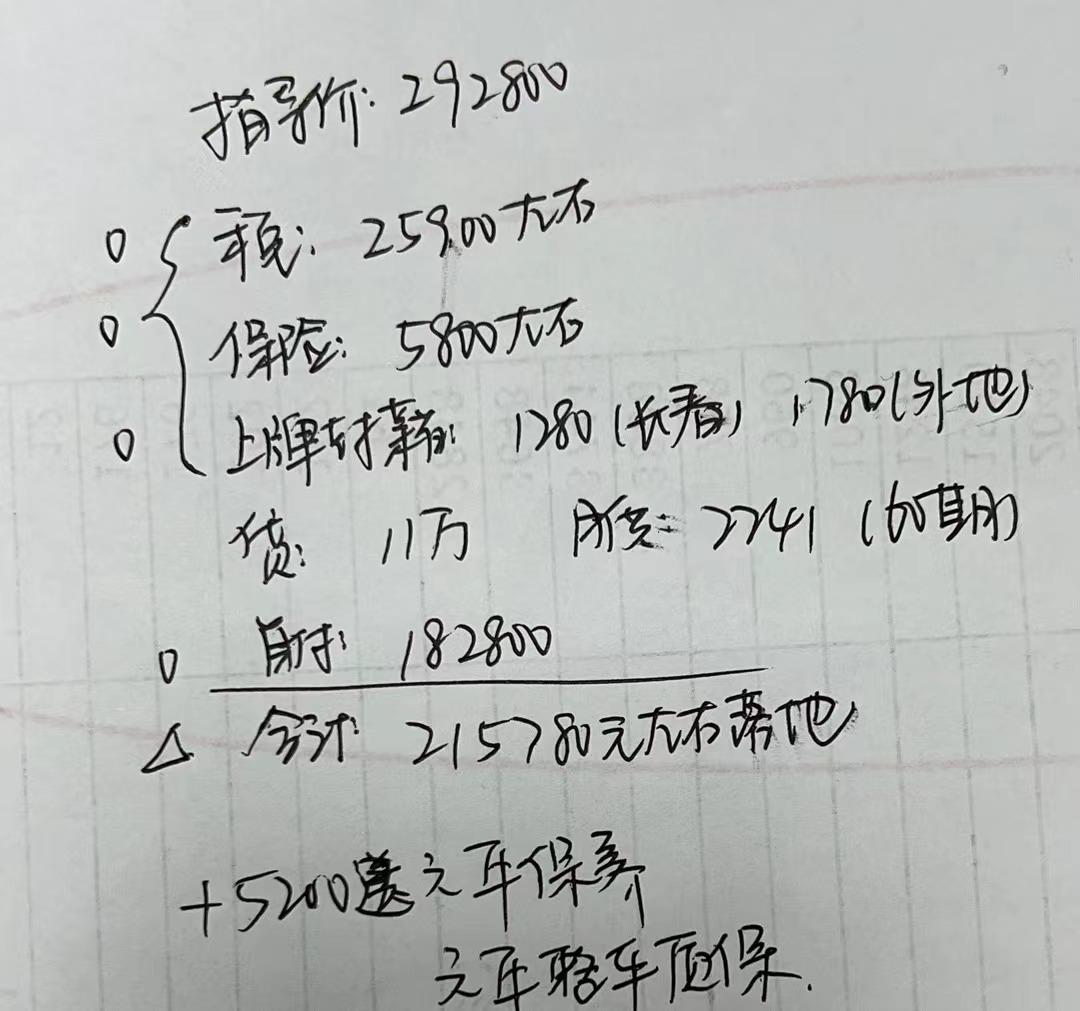 指导价: 292800
车税: 25900左右
保险: 5800左右
上牌 1280(长春) 1780(外地)
贷: 11万 月供: 2241 (60期)
首付: 182800
合计: 215780元左右落地
+5200送三年保养
三年整车质保.